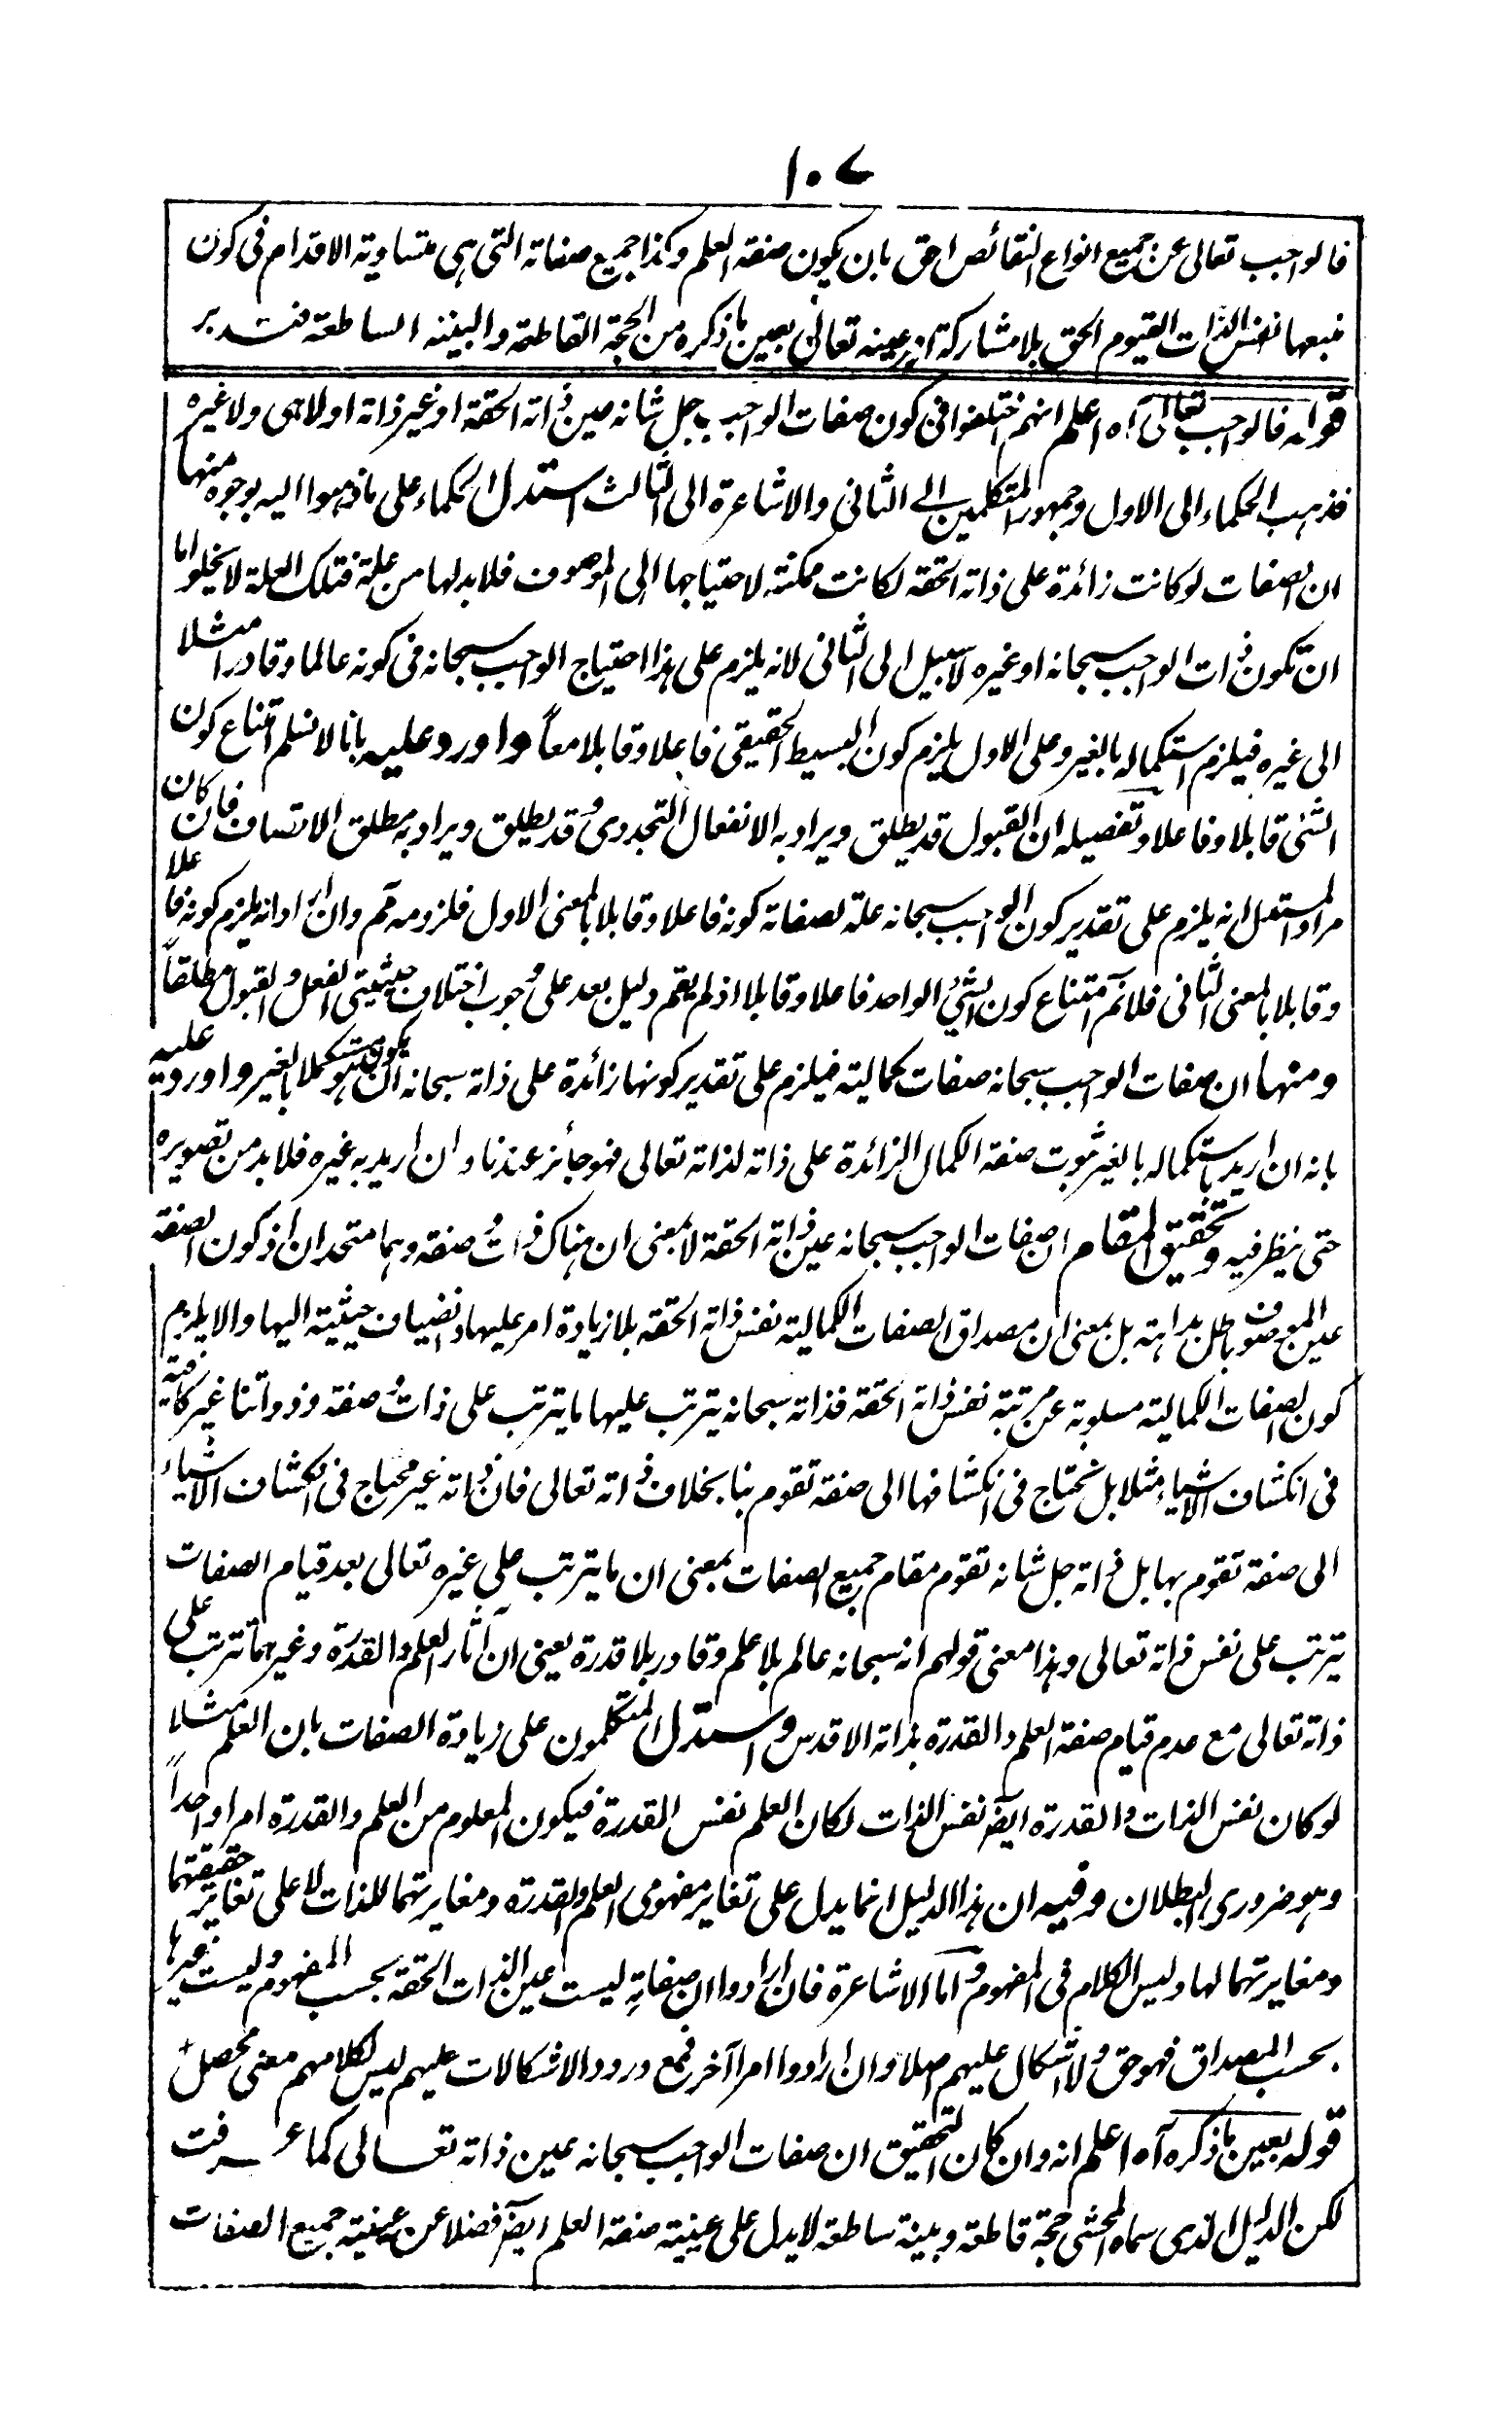 ١٠٧
فالواجب تعالى عن جميع انواع النقائص احق بان يكون صفة العلم وكذا جميع صفاته التى هى متساوية الاقدام فى كون
منبعها نفس الذات القيوم الحق بلا مشاركة امر عينه تعالى بعين ما ذكره من الحجة القاطعة والبينة الساطعة فتدبر
قوله فالواجب تعالى آه اعلم انهم اختلفوا فى كون صفات الواجب جل شانه عين ذاته الحقة او غير ذاته او لا هى ولا غيره
فذهب الحكماء الى الاول وجمهور المتكلمين الى الثانى والاشاعرة الى الثالث استدل الحكماء على ما ذهبوا اليه بوجوه منها
ان الصفات لو كانت زائدة على ذاته الحقة لكانت ممكنة لاحتياجها الى الموصوف فلا بد لها من علة فتلك العلة لا يخلو اما
ان تكون ذات الواجب سبحانه او غيره لا سبيل الى الثانى لانه يلزم على هذا احتياج الواجب سبحانه فى كونه عالما وقادرا مثلا
الى غيره فيلزم استكماله بالغير وعلى الاول يلزم كون البسيط الحقيقى فاعلا وقابلا معاً واورد عليه بانا لا نسلم امتناع كون
الشئ قابلا وفاعلا وتفصيله ان القبول قد يطلق ويراد به الانفعال التجددى وقد يطلق ويراد به مطلق الاتصاف فان كان
مراد المستدل انه يلزم على تقدير كون الواجب سبحانه علة لصفاته كونه فاعلا وقابلا بالمعنى الاول فلزومه مم وان اراد انه يلزم كونه فاعلا
وقابلا بالمعنى الثانى فلانم امتناع كون الشئ الواحد فاعلا وقابلا اذ لم يقم دليل بعد على وجوب اختلاف حيثيتى الفعل والقبول مطلقاً
ومنها ان صفات الواجب سبحانه صفات كمالية فيلزم على تقدير كونها زائدة على ذاته سبحانه ان يكون هو مستكملا بالغير واورد عليه
بانه ان اريد باستكماله بالغير ثبوت صفة الكمال الزائدة على ذاته لذاته تعالى فهو جائز عندنا وان اريد به غيره فلا بد من تصويره
حتى ينظر فيه وتحقيق المقام ان صفات الواجب سبحانه عين ذاته الحقة لا بمعنى ان هناك ذات وصفة وهما متحدان اذ كون الصفة
عين الموصوف باطل بداهة بل بمعنى ان مصداق الصفات الكمالية نفس ذاته الحقة بلا زيادة امر عليها وانضياف حيثية اليها والا يلزم
كون الصفات الكمالية مسلوبة عن مرتبة نفس ذاته الحقة فذاته سبحانه يترتب عليها ما يترتب على ذات وصفة وذواتنا غير كافية
فى انكشاف الاشياء مثلا بل نحتاج فى انكشافها الى صفة تقوم بنا بخلاف ذاته تعالى فان ذاته غير محتاج فى انكشاف الاشياء
الى صفة تقوم بها بل ذاته جل شانه تقوم مقام جميع الصفات بمعنى ان ما يترتب على غيره تعالى بعد قيام الصفات
يترتب على نفس ذاته تعالى وهذا معنى قولهم انه سبحانه عالم بلا علم وقادر بلا قدرة يعنى ان آثار العلم والقدرة وغيرهما تترتب على
ذاته تعالى مع عدم قيام صفة العلم والقدرة بذاته الاقدس واستدل المتكلمون على زيادة الصفات بان العلم مثلا
لو كان نفس الذات والقدرة ايضر نفس الذات لكان العلم نفس القدرة فيكون المعلوم من العلم والقدرة امرا واحداً
وهو ضرورى البطلان وفيه ان هذا الدليل انما يدل على تغاير مفهومى العلم والقدرة ومغايرتهما للذات لا على تغاير حقيقتهما
ومغايرتهما لها وليس الكلام فى المفهوم واما الاشاعرة فان ارادوا ان صفاته ليست عين الذات الحقة بحسب المفهوم وليست غيرها
بحسب المصداق فهو حق ولا اشكال عليهم اصلا وان ارادوا امرا آخر فمع ورود الاشكالات عليهم ليس لكلامهم معنى محصل
قوله بعين ما ذكره آه اعلم انه وان كان التحقيق ان صفات الواجب سبحانه عين ذاته تعالى كما عرفت
لكن الدليل الذى سماه المحشى حجة قاطعة وبينة ساطعة لا يدل على عينية صفة العلم ايضر فضلا عن عينية جميع الصفات